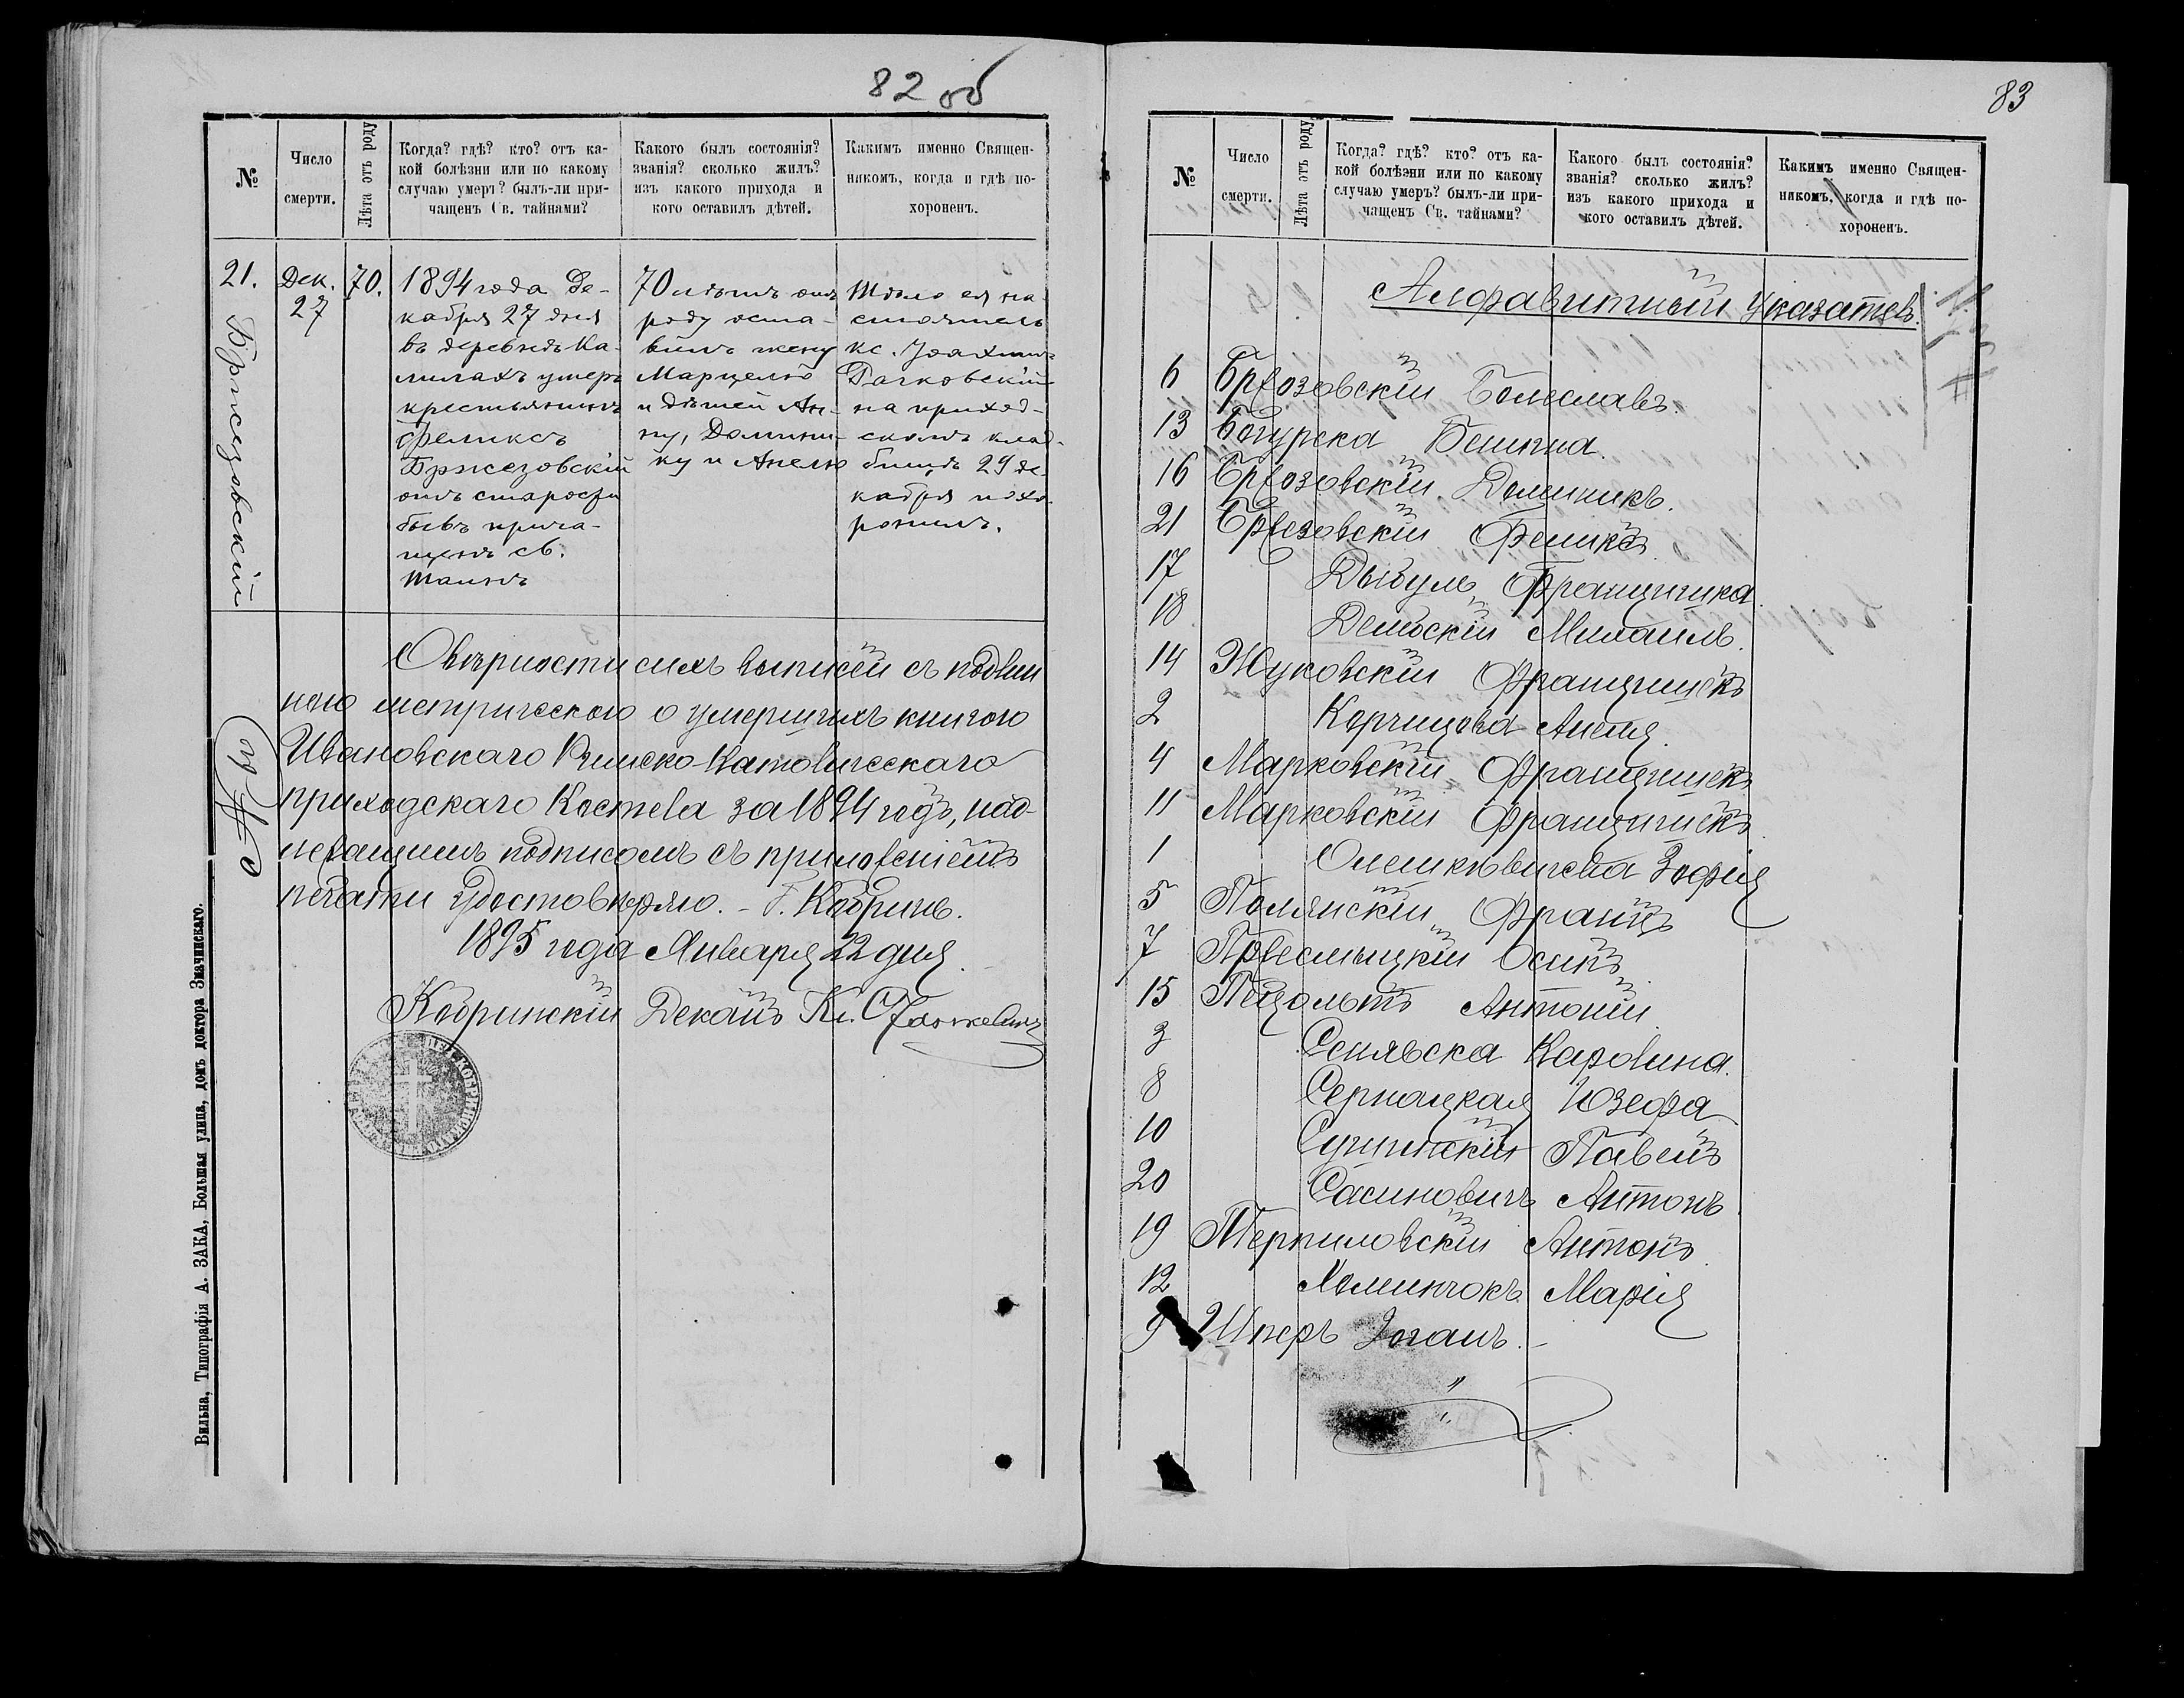 82 об
№
Число
смерти.
Лѣта отъ роду
Когда? гдѣ? кто? отъ ка-
кой болѣзни или по какому
случаю умеръ? былъ-ли при-
чащенъ Св. тайнами?
Какого былъ состоянія?
званія? сколько жилъ?
изъ какого прихода и
кого оставилъ дѣтей.
Какимъ именно Священ-
никомъ, когда и гдѣ по-
хороненъ.
21.
Бржезовскій
Дек.
27
70.
1894 года Де-
кабря 27 дня
въ деревнѣ Ка-
милахъ умеръ
крестьянинъ
Феликсъ
Бржезовскій
отъ старости
бывъ прича-
щенъ св.
таинъ
70 лѣтъ отъ
роду оста-
вилъ жену
Марцелю
и дѣтей Ан-
ну, Домини-
ку и Анелю
Тѣло ея на-
стоятель
кс. Іоахимъ
Рачковскій
на приход-
скомъ клад-
бищѣ 29 де-
кабря похо-
ронилъ.
О вѣрности сихъ выписей съ подлин
ною метрическою о умершихъ книгою
Ивановскаго Римско-Католическаго
приходскаго Костела за 1894 годъ, над-
лежащимъ подписомъ съ приложеніемъ
печатки удостовѣряю. – Г. Кобринъ.
1895 года Января 22 дня.
Кобринскій Деканъ Кс.
Вильна, Типографія А. ЗАКА, Большая улица, домъ доктора Значинскаго.
83
№
Число
смерти.
Лѣта отъ роду
Когда? гдѣ? кто? отъ ка-
кой болѣзни или по какому
случаю умеръ? былъ-ли при-
чащенъ Св. тайнами?
Какого былъ состоянія?
званія? сколько жилъ?
изъ какого прихода и
кого оставилъ дѣтей.
Какимъ именно Священ-
никомъ, когда и гдѣ по-
хороненъ.
Алфавитный указатель.
6 Бржозовскій Болеславъ.
13 Богурска
16 Бржозовскій Доминикъ.
21 Бржезовскій Феликсъ
17 Дыбулъ Францишка
18 Дембскій Михаилъ.
14 Жуковскій Францишекъ
2 Корчицова Анеля.
4 Марковскій Францишекъ
11 Марковскій Францишекъ
1 Олешкевичева Зофія
5 Полянскій Францъ
7 Пржесмыцкій Осипъ
15 Пецольтъ Антоній
3 Сеплевска Каролина.
8 Сернацкая Юзефа
10 Сущинскій Павелъ
20 Сасиновичъ Антонъ
19 Терпиловскій Антонъ
12 Хоминчокъ Марія
9 Шперъ Іоганъ. –